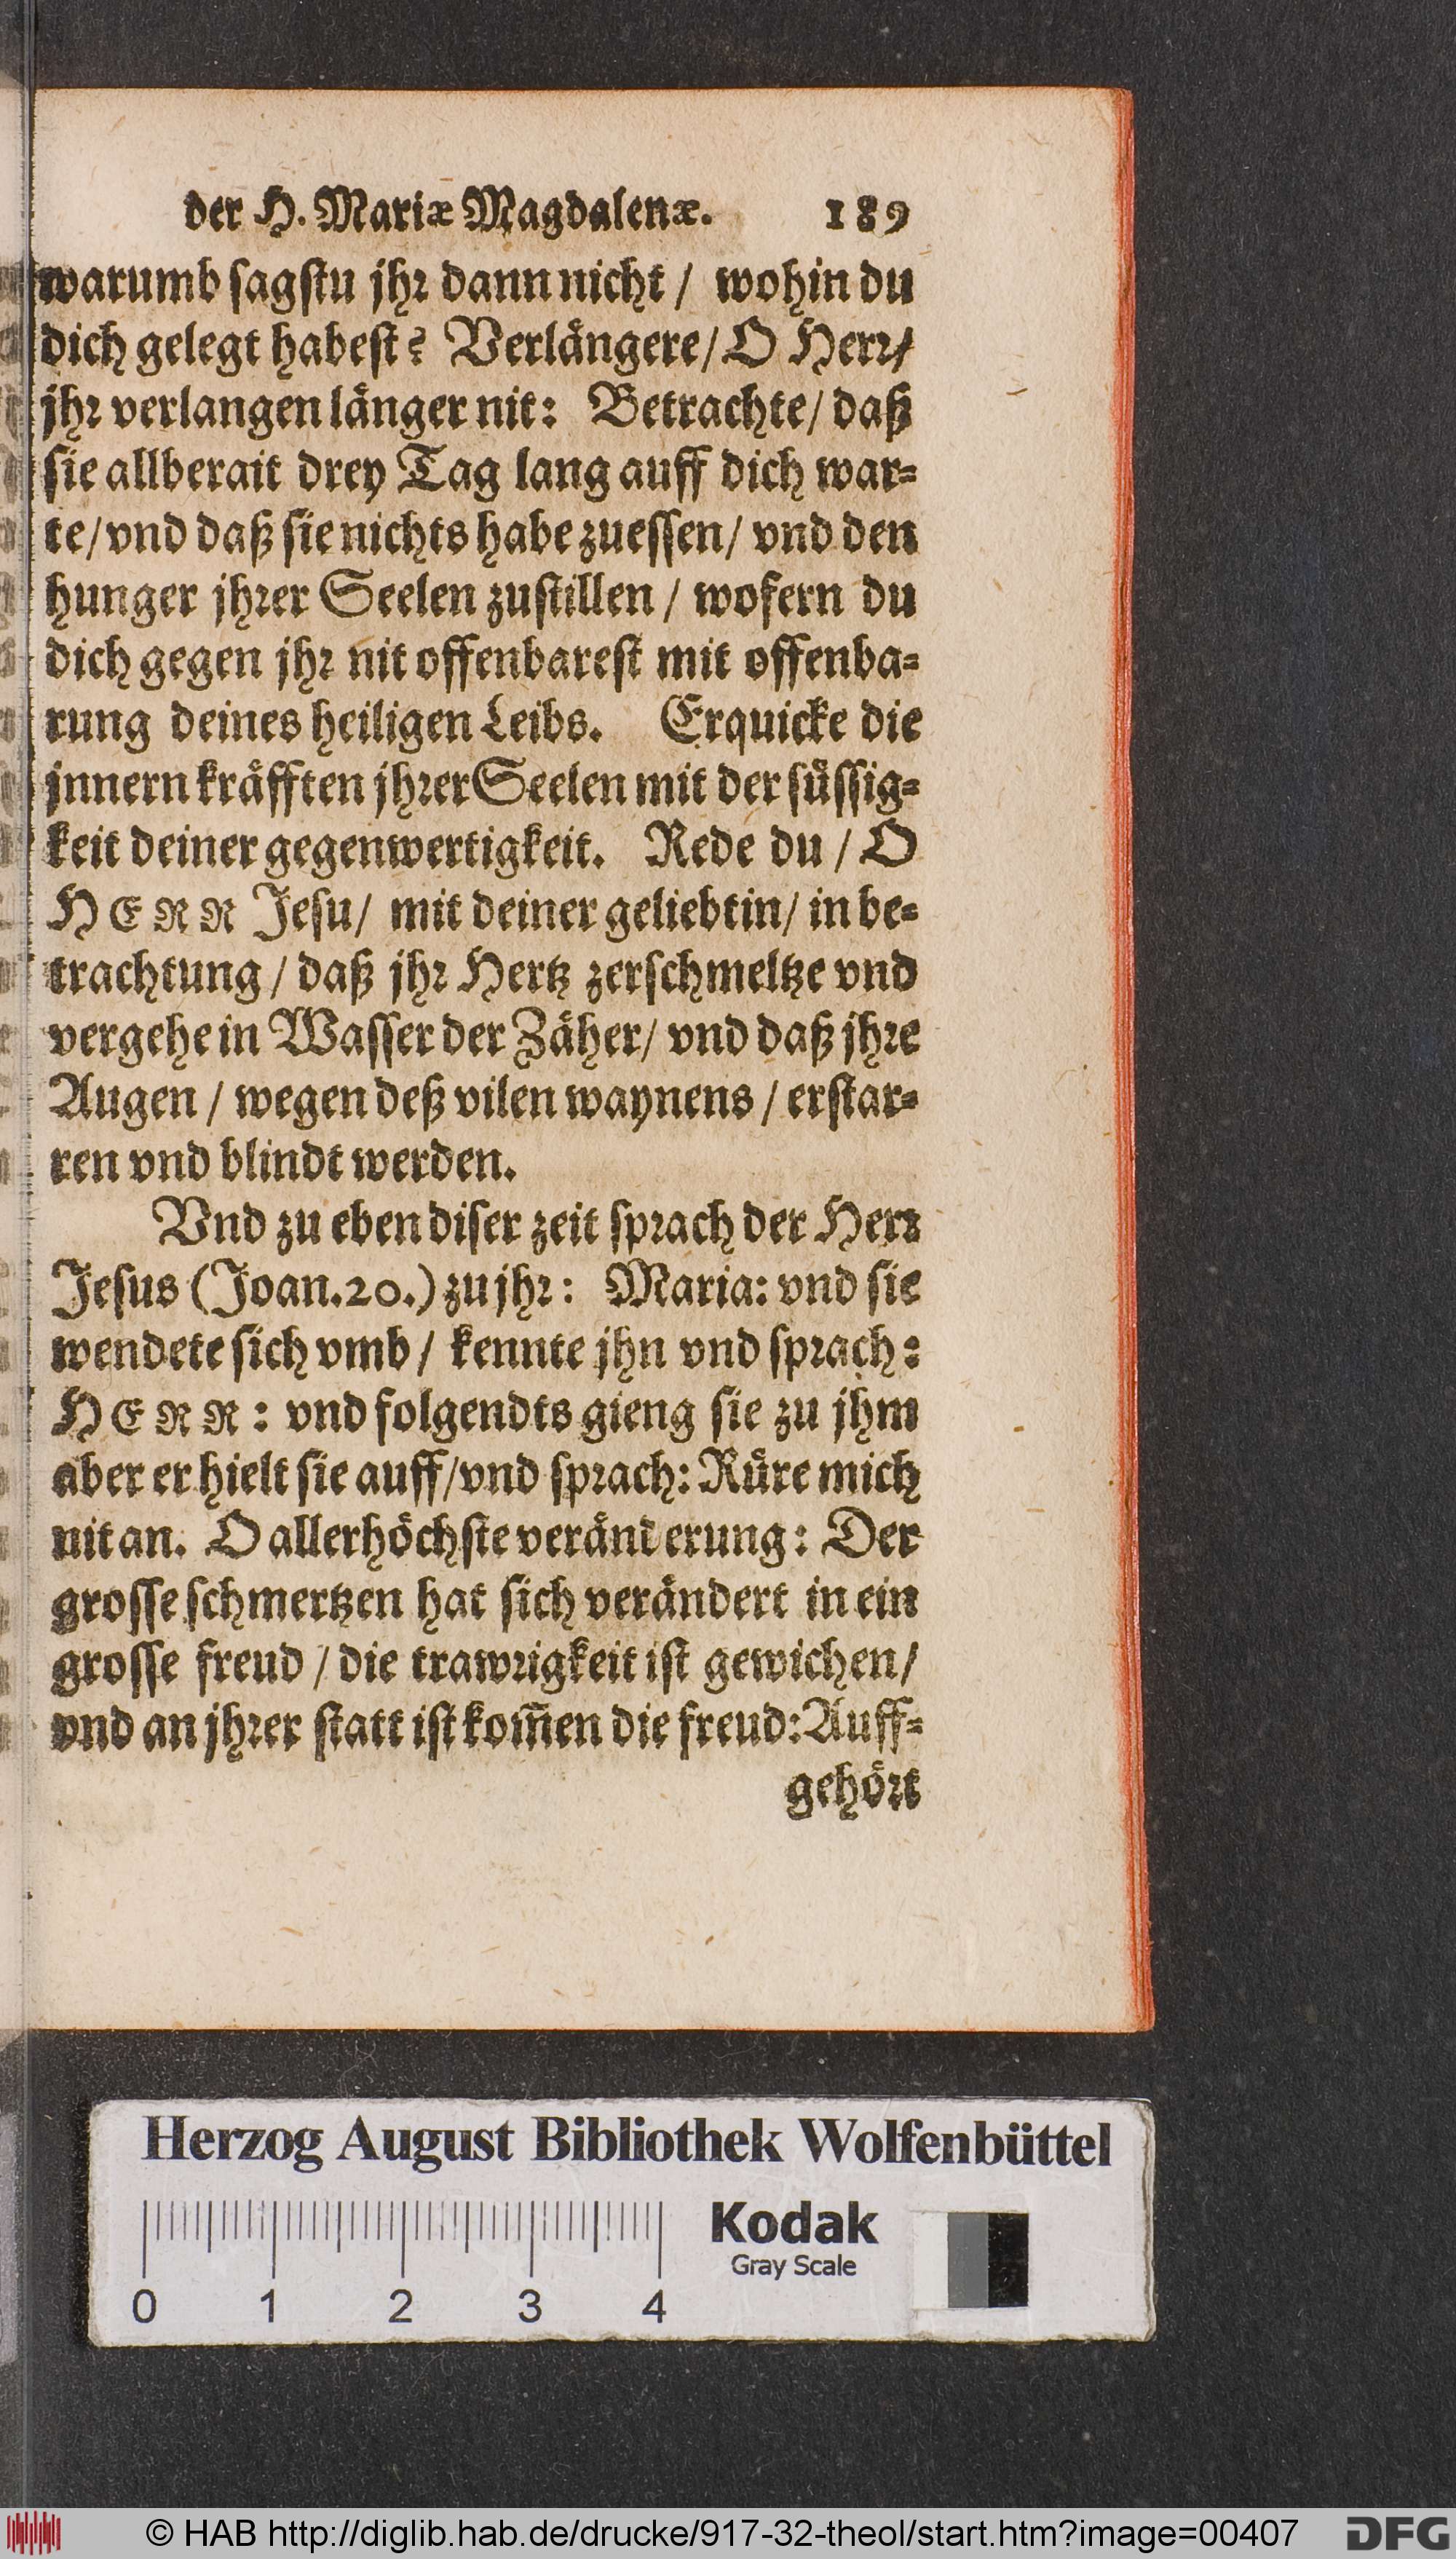 der H. Mariæ Magdalenæ. 189
warumb sagstu jhr dann nicht / wohin du
dich gelegt habest? Verlängere/ O Herr/
jhr verlangen länger nit: Betrachte/ daß
sie allberait drey Tag lang auff dich war-
te/ vnd daß sie nichts habe zuessen/ vnd den
hunger jhrer Seelen zustillen / wofern du
dich gegen jhr nit offenbarest mit offenba-
rung deines heiligen Leibs. Erquicke die
jnnern kräfften jhrer Seelen mit der süssig-
keit deiner gegenwertigkeit. Rede du / O
HERR Jesu/ mit deiner geliebtin/ in be-
trachtung / daß jhr Hertz zerschmeltze vnd
vergehe in Wasser der Zäher/ vnd daß jhre
Augen / wegen deß vilen waynens / erstar-
ren vnd blindt werden.
Vnd zu eben diser zeit sprach der Herr
Jesus (Joan.20.) zu jhr: Maria: vnd sie
wendete sich vmb / kennte jhn vnd sprach:
HERR: vnd folgendts gieng sie zu jhm
aber er hielt sie auff/ vnd sprach: Rüre mich
nit an. O allerhöchste veränderung: Der
grosse schmertzen hat sich verändert in ein
grosse freud / die trawrigkeit ist gewichen/
vnd an jhrer statt ist kom̃en die freud: Auff-
gehört
Herzog August Bibliothek Wolfenbüttel
Kodak
Gray Scale
0 1 2 3 4
© HAB http://diglib.hab.de/drucke/917-32-theol/start.htm?image=00407
DFG